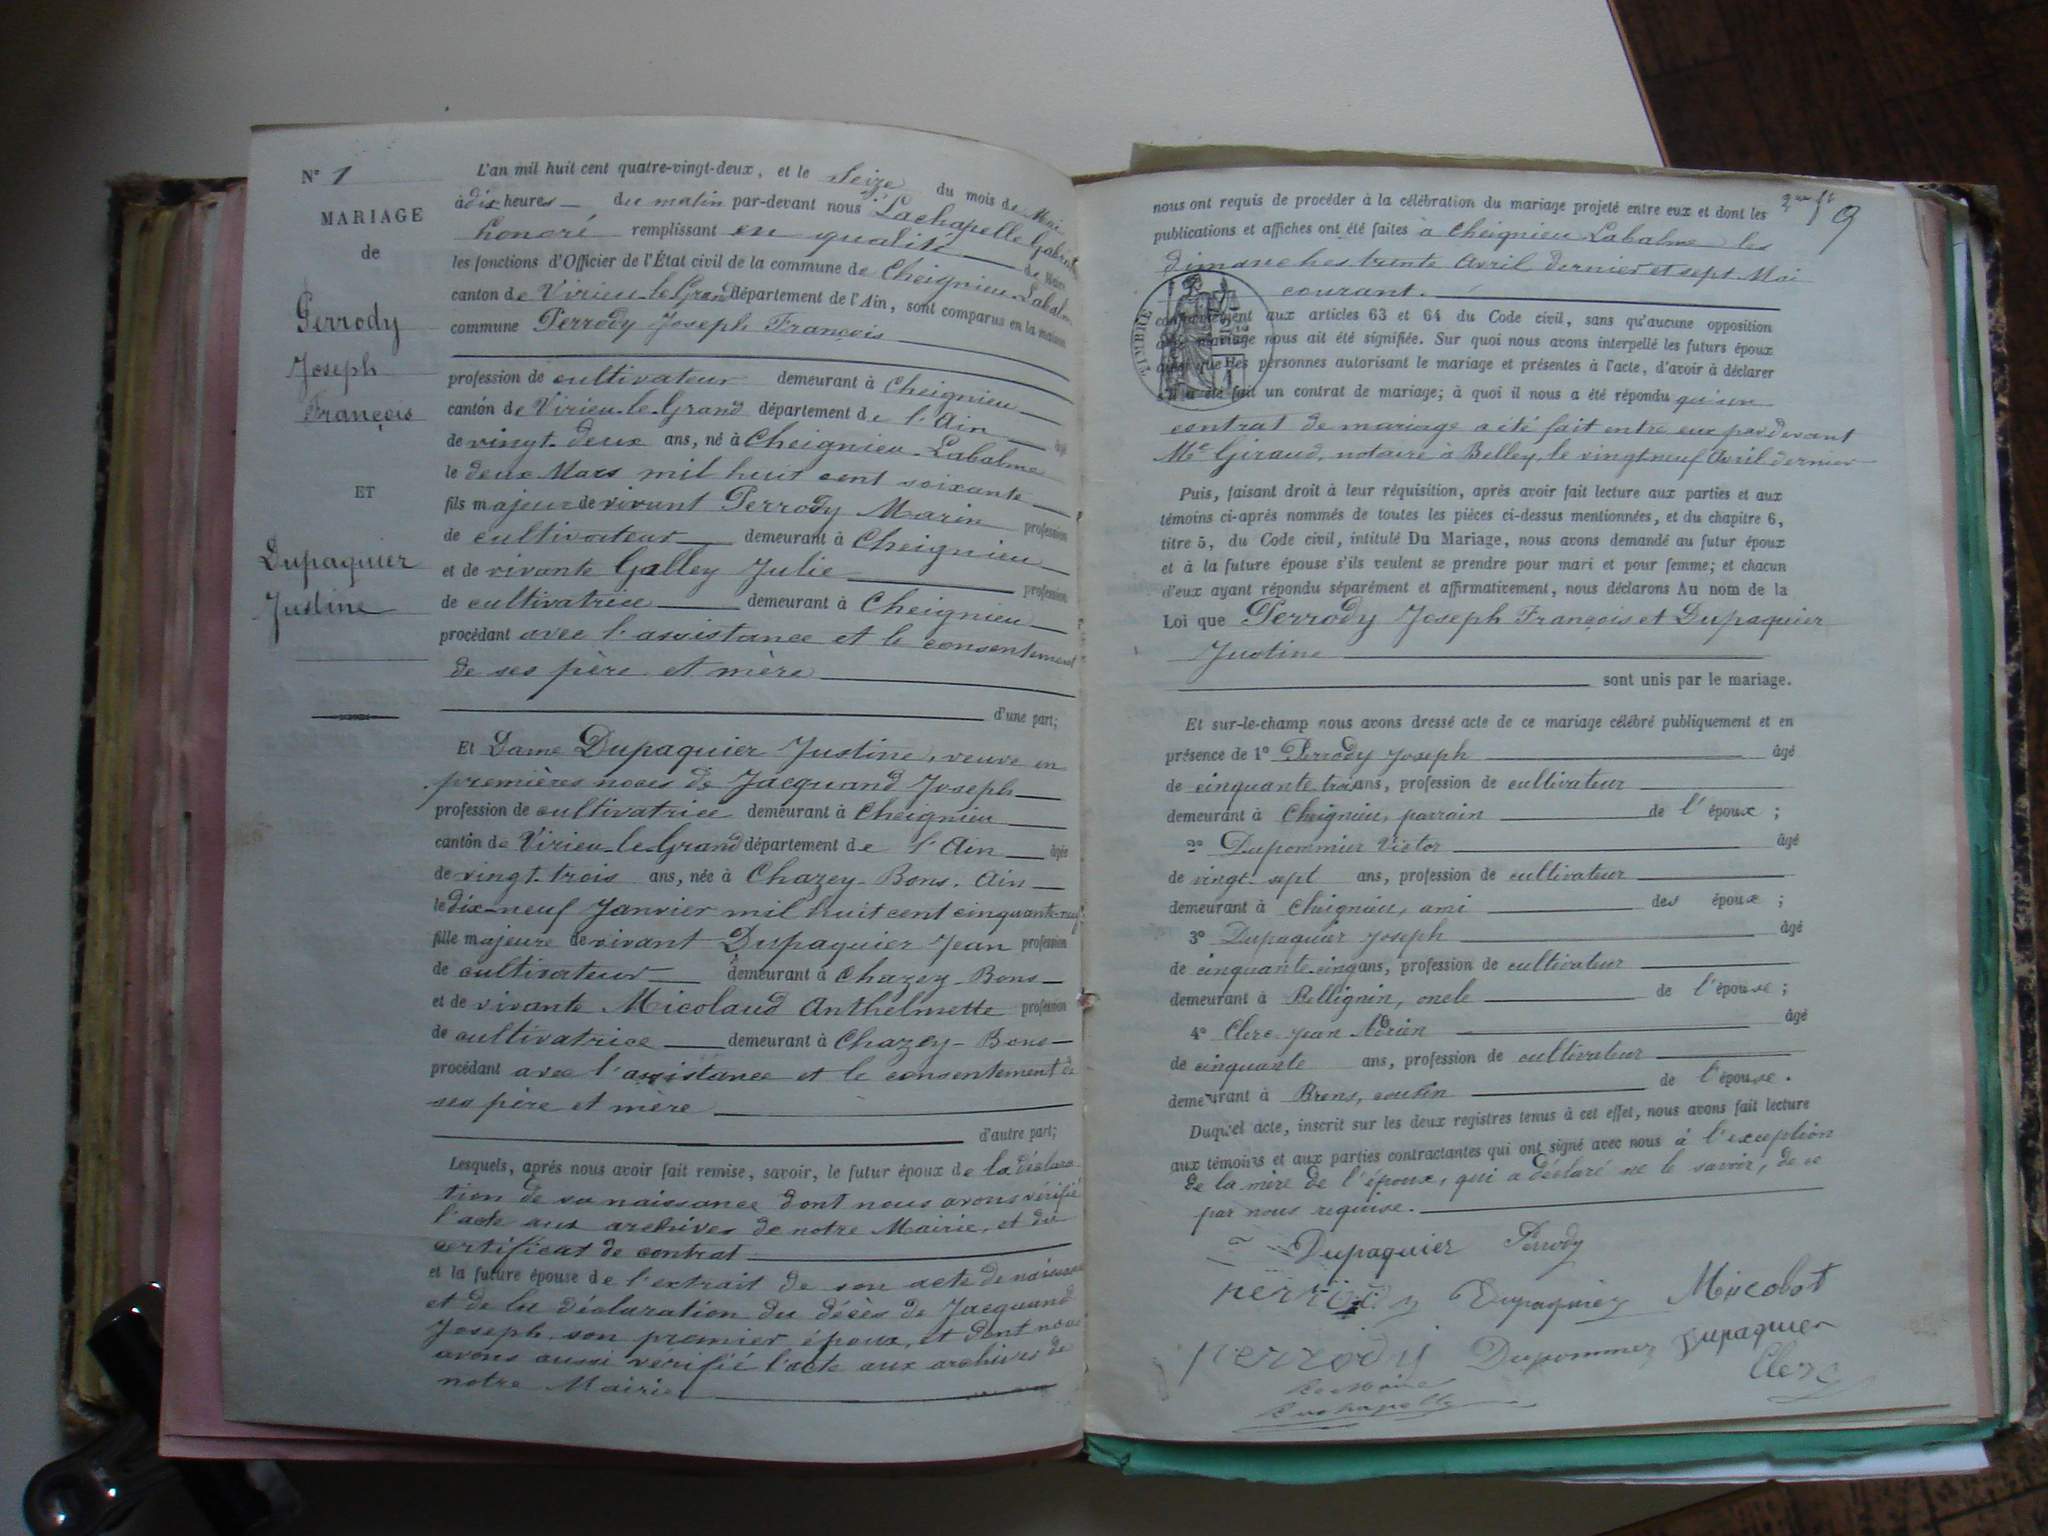 N° 1
MARIAGE
de
Perrody
Joseph
François
ET
Dupaquier
Justine
L'an mil huit cent quatre-vingt-deux, et le Seize du mois de Mai
à dix heures du matin par-devant nous Lachapelle Gabriel
honoré remplissant en qualité de Maire
les fonctions d'Officier de l'État civil de la commune de Cheignieu-Labalme
canton de Virieu-le-Grand Département de l'Ain, sont comparus en la maison
commune Perrody Joseph François
profession de cultivateur demeurant à Cheignieu
canton de Virieu-le-Grand département de l'Ain âgé
de vingt-deux ans, né à Cheignieu-Labalme
le deux Mars mil huit cent soixante
fils majeur de vivant Perrody Marin profession
de cultivateur demeurant à Cheignieu
et de vivante Galley Julie profession
de cultivatrice demeurant à Cheignieu
procédant avec l'assistance et le consentement
de ses père et mère
d'une part;
Et Dame Dupaquier Justine, veuve en
premières noces de Jacquand Joseph
profession de cultivatrice demeurant à Cheignieu
canton de Virieu-le-Grand département de l'Ain âgée
de vingt-trois ans, née à Chazey-Bons, Ain
le dix-neuf Janvier mil huit cent cinquante-neuf
fille majeure de vivant Dupaquier Jean profession
de cultivateur demeurant à Chazey-Bons
et de vivante Micolaud Anthelmette profession
de cultivatrice demeurant à Chazey-Bons
procédant avec l'assistance et le consentement de
ses père et mère
d'autre part;
Lesquels, après nous avoir fait remise, savoir, le futur époux de la déclara-
tion de sa naissance dont nous avons vérifié
l'acte aux archives de notre Mairie, et du
certificat de contrat
et la future épouse de l'extrait de son acte de naissance
et de la déclaration du décès de Jacquand
Joseph, son premier époux, et dont nous
avons aussi vérifié l'acte aux archives de
notre Mairie
9
nous ont requis de procéder à la célébration du mariage projeté entre eux et dont les
publications et affiches ont été faites à Cheignieu Labalme les
dimanches trente Avril dernier et sept Mai
courant.
TIMBRE
conformément aux articles 63 et 64 du Code civil, sans qu'aucune opposition
audit mariage nous ait été signifiée. Sur quoi nous avons interpellé les futurs époux
ainsi que les personnes autorisant le mariage et présentes à l'acte, d'avoir à déclarer
s'il a été fait un contrat de mariage; à quoi il nous a été répondu qu'un
contrat de mariage a été fait entre eux par devant
Me Giraud, notaire à Belley, le vingt-neuf Avril dernier
Puis, faisant droit à leur réquisition, après avoir fait lecture aux parties et aux
témoins ci-après nommés de toutes les pièces ci-dessus mentionnées, et du chapitre 6,
titre 5, du Code civil, intitulé Du Mariage, nous avons demandé au futur époux
et à la future épouse s'ils veulent se prendre pour mari et pour femme; et chacun
d'eux ayant répondu séparément et affirmativement, nous déclarons Au nom de la
Loi que Perrody Joseph François et Dupaquier
Justine
sont unis par le mariage.
Et sur-le-champ nous avons dressé acte de ce mariage célébré publiquement et en
présence de 1° Perrody Joseph âgé
de cinquante trois ans, profession de cultivateur
demeurant à Cheignieu, parrain de l'époux ;
2° Dupommier Victor âgé
de vingt-sept ans, profession de cultivateur
demeurant à Cheignieu, ami des époux ;
3° Dupaquier Joseph âgé
de cinquante cinq ans, profession de cultivateur
demeurant à Bellignin, oncle de l'épouse ;
4° Clerc Jean Adrien âgé
de cinquante ans, profession de cultivateur
demeurant à Brens, cousin de l'épouse.
Duquel acte, inscrit sur les deux registres tenus à cet effet, nous avons fait lecture
aux témoins et aux parties contractantes qui ont signé avec nous à l'exception
de la mère de l'époux, qui a déclaré ne le savoir, de ce
par nous requise.
Dupaquier Perrody
perrody Dupaquier Micolot
perrody Dupommier Dupaquier
Clerc
Le Maire
Lachapelle